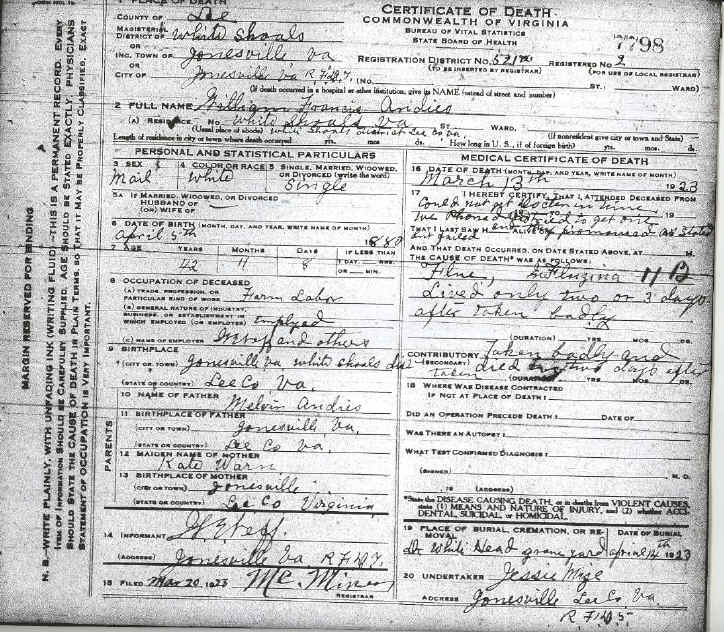 1 PLACE OF DEATH
COUNTY OF Lee
MAGISTERIAL DISTRICT OF White Shoals
OR
INC. TOWN OF Jonesville Va
OR
CITY OF Jonesville Va R F D 7, (No. ST. WARD)
CERTIFICATE OF DEATH
COMMONWEALTH OF VIRGINIA
BUREAU OF VITAL STATISTICS
STATE BOARD OF HEALTH
7798
REGISTRATION DISTRICT NO. REGISTERED NO. 2
(TO BE INSERTED BY REGISTRAR) (FOR USE OF LOCAL REGISTRAR)
(If death occurred in a hospital or other institution, give its NAME instead of street and number)
2 FULL NAME William Francis Andies
(A) RESIDENCE. No. White Shoals Va ST. WARD.
(Usual place of abode) White Shoals District Lee Co Va. (If nonresident give city or town and State)
Length of residence in city or town where death occurred yrs. mos. ds. How long in U. S., if of foreign birth? yrs. mos. ds.
PERSONAL AND STATISTICAL PARTICULARS
3 SEX Mail
4 COLOR OR RACE White
5 SINGLE, MARRIED, WIDOWED, OR DIVORCED (write the word) Single
5A IF MARRIED, WIDOWED, OR DIVORCED
HUSBAND OF
(OR) WIFE OF
6 DATE OF BIRTH (MONTH, DAY, AND YEAR, WRITE NAME OF MONTH)
April 5th 1880
7 AGE YEARS MONTHS DAYS IF LESS THAN
42 11 8 1 DAY HRS.
OR MIN.
8 OCCUPATION OF DECEASED
(A) TRADE, PROFESSION, OR PARTICULAR KIND OF WORK Farm Labor
(B) GENERAL NATURE OF INDUSTRY, BUSINESS, OR ESTABLISHMENT IN WHICH EMPLOYED (OR EMPLOYER) employed
(C) NAME OF EMPLOYER and others
9 BIRTHPLACE
(CITY OR TOWN) Jonesville Va White Shoals dis
(STATE OR COUNTRY) Lee Co Va.
PARENTS
10 NAME OF FATHER Melvin Andies
11 BIRTHPLACE OF FATHER
(CITY OR TOWN) Jonesville Va.
(STATE OR COUNTRY) Lee Co Va.
12 MAIDEN NAME OF MOTHER Kate Warn
13 BIRTHPLACE OF MOTHER
(CITY OR TOWN) Jonesville
(STATE OR COUNTRY) Lee Co Virginia
14 INFORMANT
(ADDRESS) Jonesville Va R F D 7
15 FILED Mar 20 1923 Mc. Miner
REGISTRAR
MEDICAL CERTIFICATE OF DEATH
16 DATE OF DEATH (MONTH, DAY, AND YEAR, WRITE NAME OF MONTH)
March 13th 1923
17 I HEREBY CERTIFY, THAT I ATTENDED DECEASED FROM
Could not get Docter in time
We Phoned tried to get one
THAT I LAST SAW H ALIVE ON
but failed
AND THAT DEATH OCCURRED, ON DATE STATED ABOVE, AT M.
THE CAUSE OF DEATH* WAS AS FOLLOWS:
11 B
Lived only two or 3 days
after taken badly
(DURATION) YRS. MOS. DS.
CONTRIBUTORY Taken badly and
(SECONDARY) died two days after
taken (DURATION) YRS. MOS. DS.
18 WHERE WAS DISEASE CONTRACTED
IF NOT AT PLACE OF DEATH?
DID AN OPERATION PRECEDE DEATH? DATE OF
WAS THERE AN AUTOPSY?
WHAT TEST CONFIRMED DIAGNOSIS?
(SIGNED) M. D.
, 19 (ADDRESS)
*State the DISEASE CAUSING DEATH, or in deaths from VIOLENT CAUSES, state (1) MEANS AND NATURE OF INJURY, and (2) whether ACCIDENTAL, SUICIDAL, or HOMICIDAL.
19 PLACE OF BURIAL, CREMATION, OR REMOVAL DATE OF BURIAL
Dr White Head grave yard April 14th 1923
20 UNDERTAKER Jessie Mize
ADDRESS Jonesville Lee Co Va.
R F D 5
MARGIN RESERVED FOR BINDING
N. B.—WRITE PLAINLY, WITH UNFADING INK (WRITING FLUID)—THIS IS A PERMANENT RECORD. EVERY
ITEM OF INFORMATION SHOULD BE CAREFULLY SUPPLIED. AGE SHOULD BE STATED EXACTLY. PHYSICIANS
SHOULD STATE THE CAUSE OF DEATH IN PLAIN TERMS, SO THAT IT MAY BE PROPERLY CLASSIFIED. EXACT
STATEMENT OF OCCUPATION IS VERY IMPORTANT.